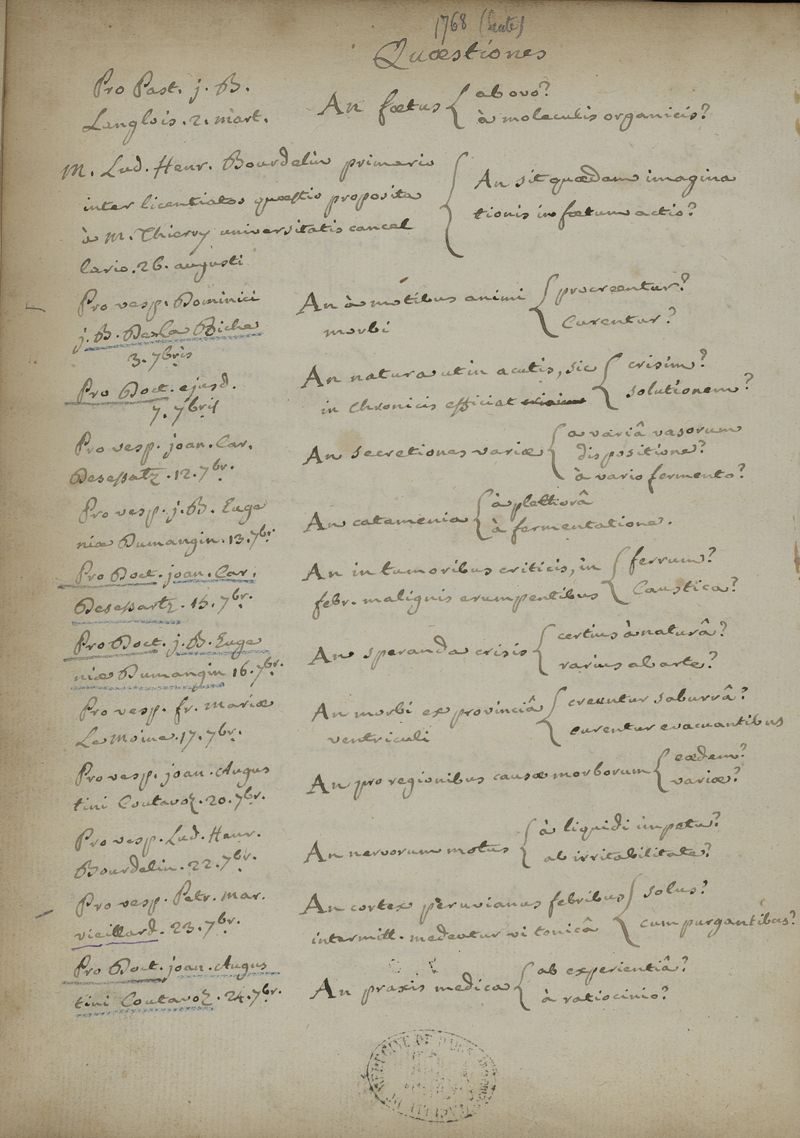 1768 (suite)
Quæstiones
Pro Past. j. B.
Langlois. 2. mart.
An fœtus { ab ovo?
à moleculis organicis?
M. Lud. Henr. Bourdelin primario
inter licentiatos quæstio proposita
à M. Thierry universitatis cancel
lario. 26. augusti
An sit quædam imagina
tionis in fœtum actio?
Pro vesp. Dominici
j. B. De La Biche
3. 7bris
An à motibus animi
morbi
{ procreentur?
Curentur?
Pro Doct. ejusd.
7. 7bris
An natura ut in acutis, sic
in Chronicis efficiat
{ crisim?
solutionem?
Pro vesp. joan. Car.
Desessartz. 12. 7br.
An secretiones variæ
{ a variâ vasorum
dispositione?
à vario fermento?
Pro vesp. j. B. Euge
niæ Dumangin. 13. 7br.
An catamenia
{ à plethorâ
à fermentatione.
Pro Doct. joan. Car.
Desessartz. 15. 7br.
An in tumoribus criticis, in
febr. malignis erumpentibus
{ ferrum?
Caustica?
Pro Doct. j. B. Euge
niæ Dumangin 16. 7br.
An speranda crisis
{ certius à naturâ?
rarius ab arte?
Pro vesp. fr. mariæ
Le Moine. 17. 7br.
An morbi ex provinciâ
ventriculi
{ creentur saburrâ?
curentur evacuantibus
Pro vesp. joan. Augus
tini Coutavoz. 20. 7br.
An pro regionibus causæ morborum
{ eædem?
variæ?
Pro vesp. Lud. Henr.
Bourdelin. 22. 7br.
An nervorum motus
{ à liquidi impetu?
ab irritabilitate?
Pro vesp. Petr. Mar.
vieillard. 23. 7br.
An cortex peruvianus febribus
intermitt. medeatur vi tonicâ
{ solus?
cum purgantibus?
Pro Doct. joan. Augus
tini Coutavoz. 24. 7br.
An praxis medica
{ ab experientiâ?
à ratiocinio?